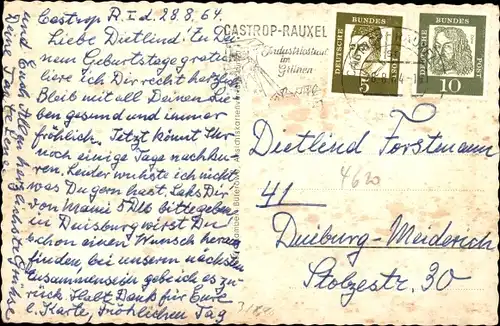 Castrop R. I d. 28.8.64.
Liebe Dietlind! Zu Dei
nem Geburtstage gratu
liere ich Dir recht herzlich
Bleib mit all Deinen Lie
ben gesund und immer
fröhlich. Jetzt könnt Ihr
noch einige Tage nachku
ren. Leider wußte ich nicht
was Du gern hast. Laß Dir
von Mami 5 DM bitte geben
in Duisburg wirst Du
schon einen Wunsch heraus
finden, bei unserm nächsten
Zusammensein gebe ich es zu
rück. Habt Dank für Eure
l. Karte, Fröhlichen Tag
und Euch Allen herzlichste Grüße
Deine Tante
CASTROP-RAUXEL
Industriestadt
im
Grünen
DEUTSCHE BUNDES POST
5
DEUTSCHE BUNDES POST
10
Dietlind Forstmann
4620
41
Duiburg-Meiderich
Stolzestr. 30